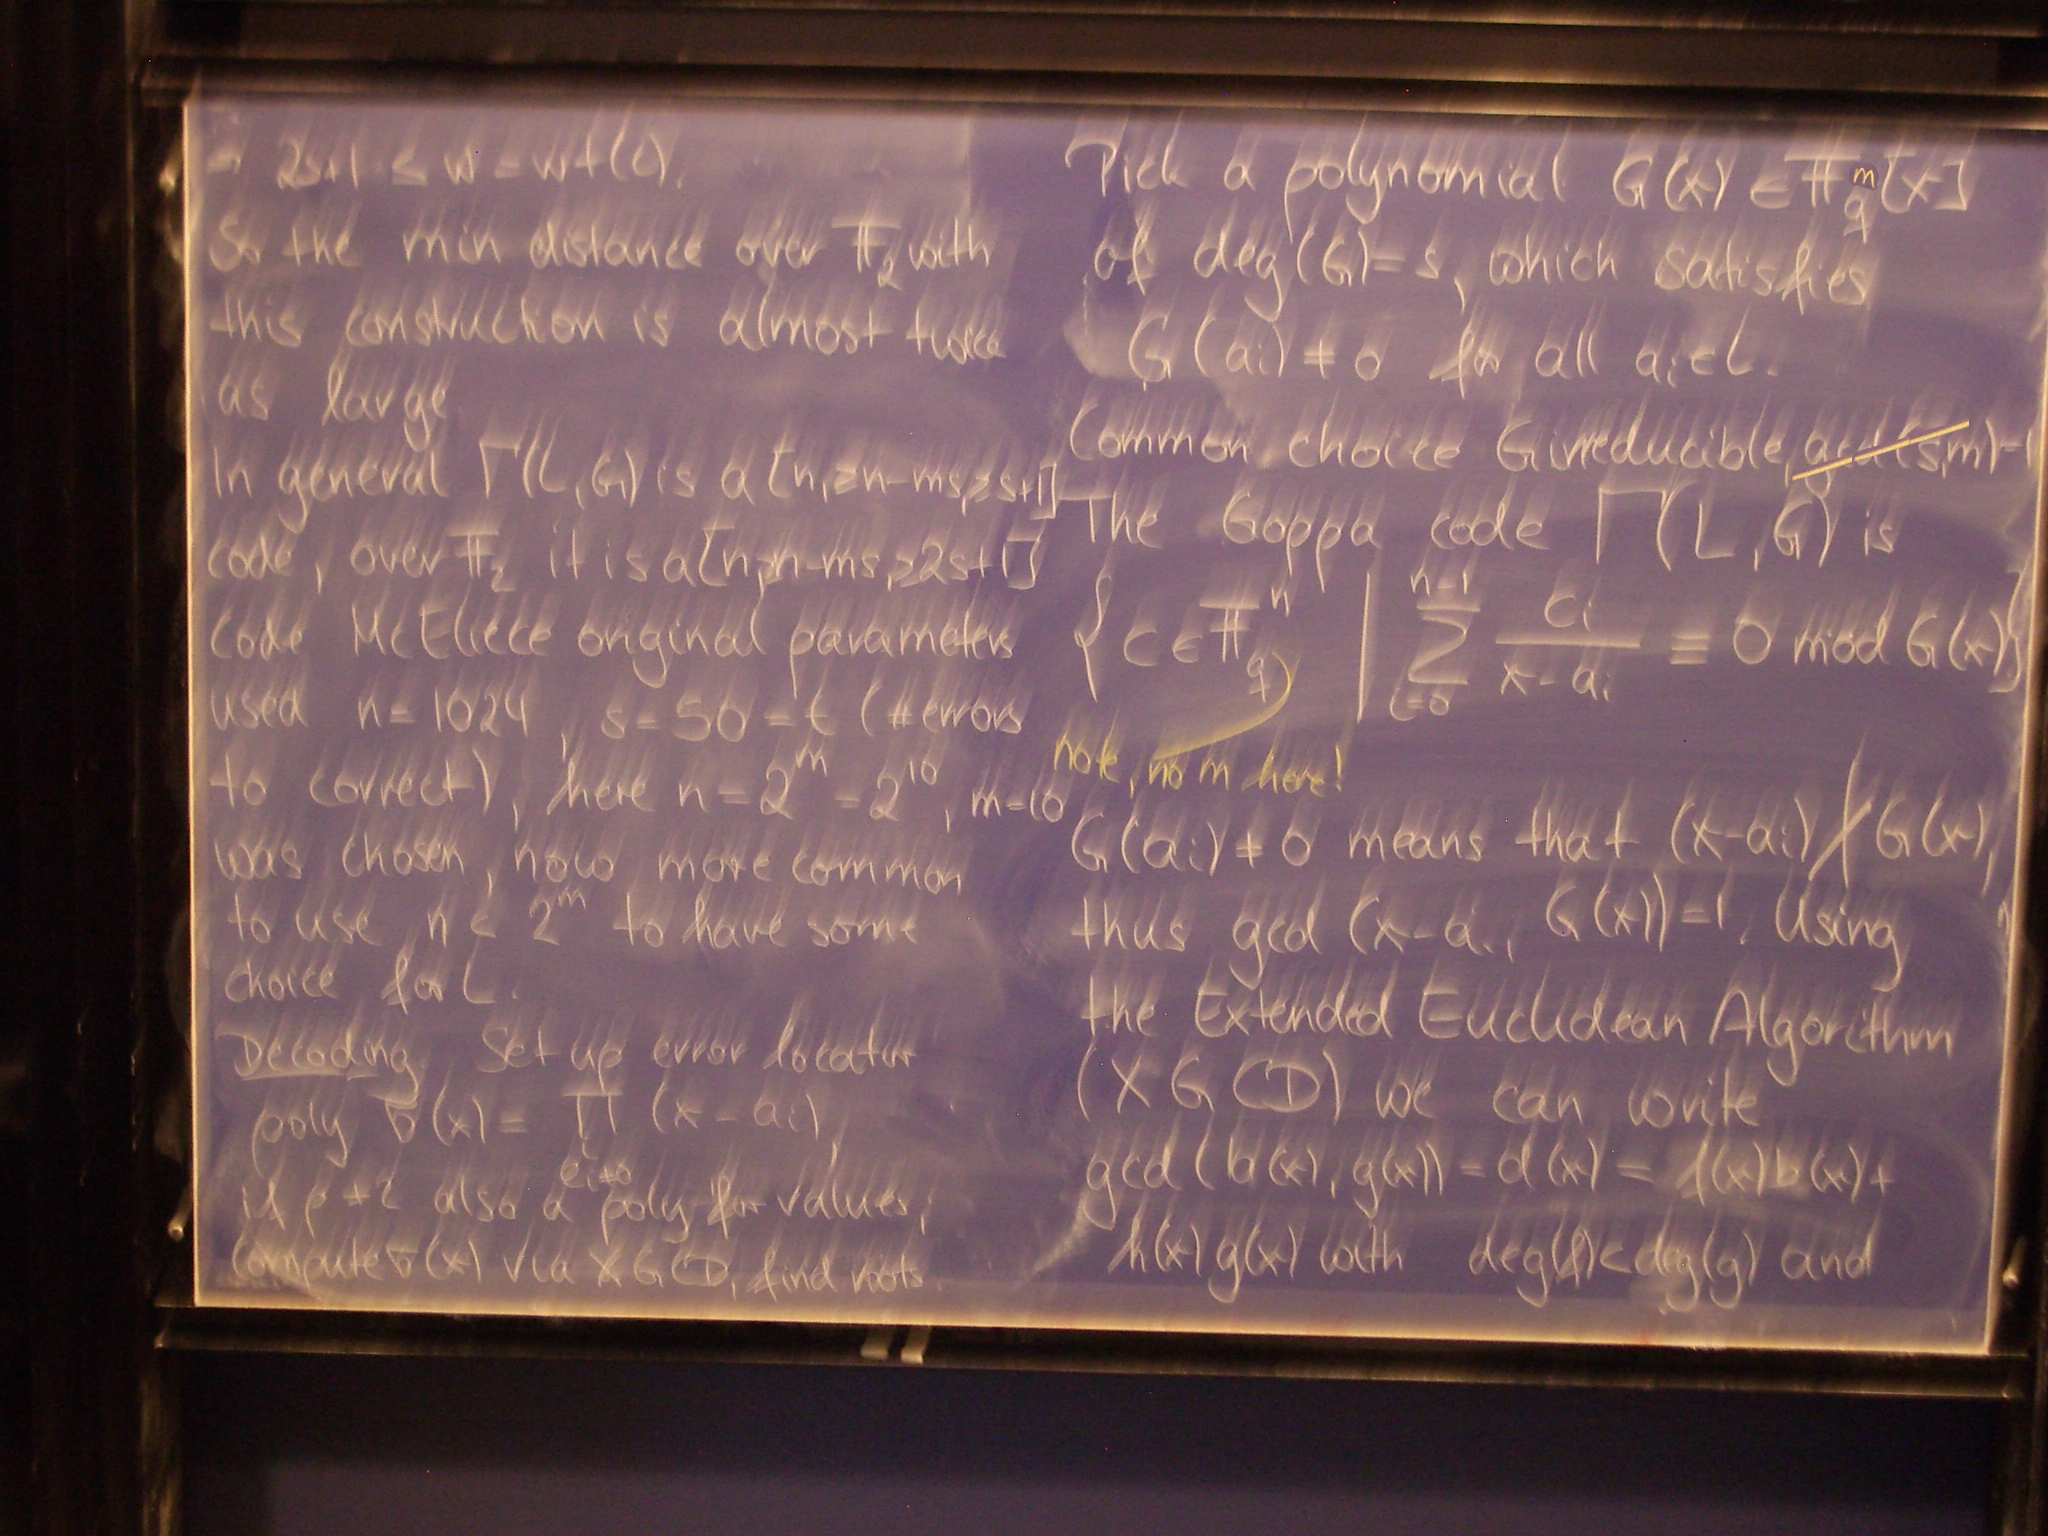 → 2s+1 ≤ w = wt(c).
So the min distance over 𝔽_2 with
this construction is almost twice
as large
In general Γ(L,G) is a [n,≥n-ms,≥s+1]
code, over 𝔽_2 it is a [n,≥n-ms,≥2s+1]
code McEliece original parameters
used n=1024, s=50=t (#errors
to correct), here n=2^m=2^10, m=10
was chosen, now more common
to use n<2^m to have some
choice for L.
Decoding Set up error locator
poly σ(x) = ∏ (x-a_i),
e_i≠0
if p≠2 also a poly for values;
compute σ(x) via XGCD, find roots.
Pick a polynomial G(x) ∈ 𝔽_q^m[x]
of deg(G)=s, which satisfies
G(a_i) ≠ 0 for all a_i∈L.
Common choice G irreducible, gcd(s,m)=1
The Goppa code Γ(L,G) is
{ c ∈ 𝔽_q^n | ∑_{i=0}^{n-1} c_i/(x-a_i) ≡ 0 mod G(x)}
note, no m here!
G(a_i) ≠ 0 means that (x-a_i) ∤ G(x),
thus gcd (x-a_i, G(x))=1. Using
the Extended Euclidean Algorithm
(XGCD) we can write
gcd(b(x), g(x)) = d(x) = f(x)b(x)+
h(x)g(x) with deg(f)<deg(g) and